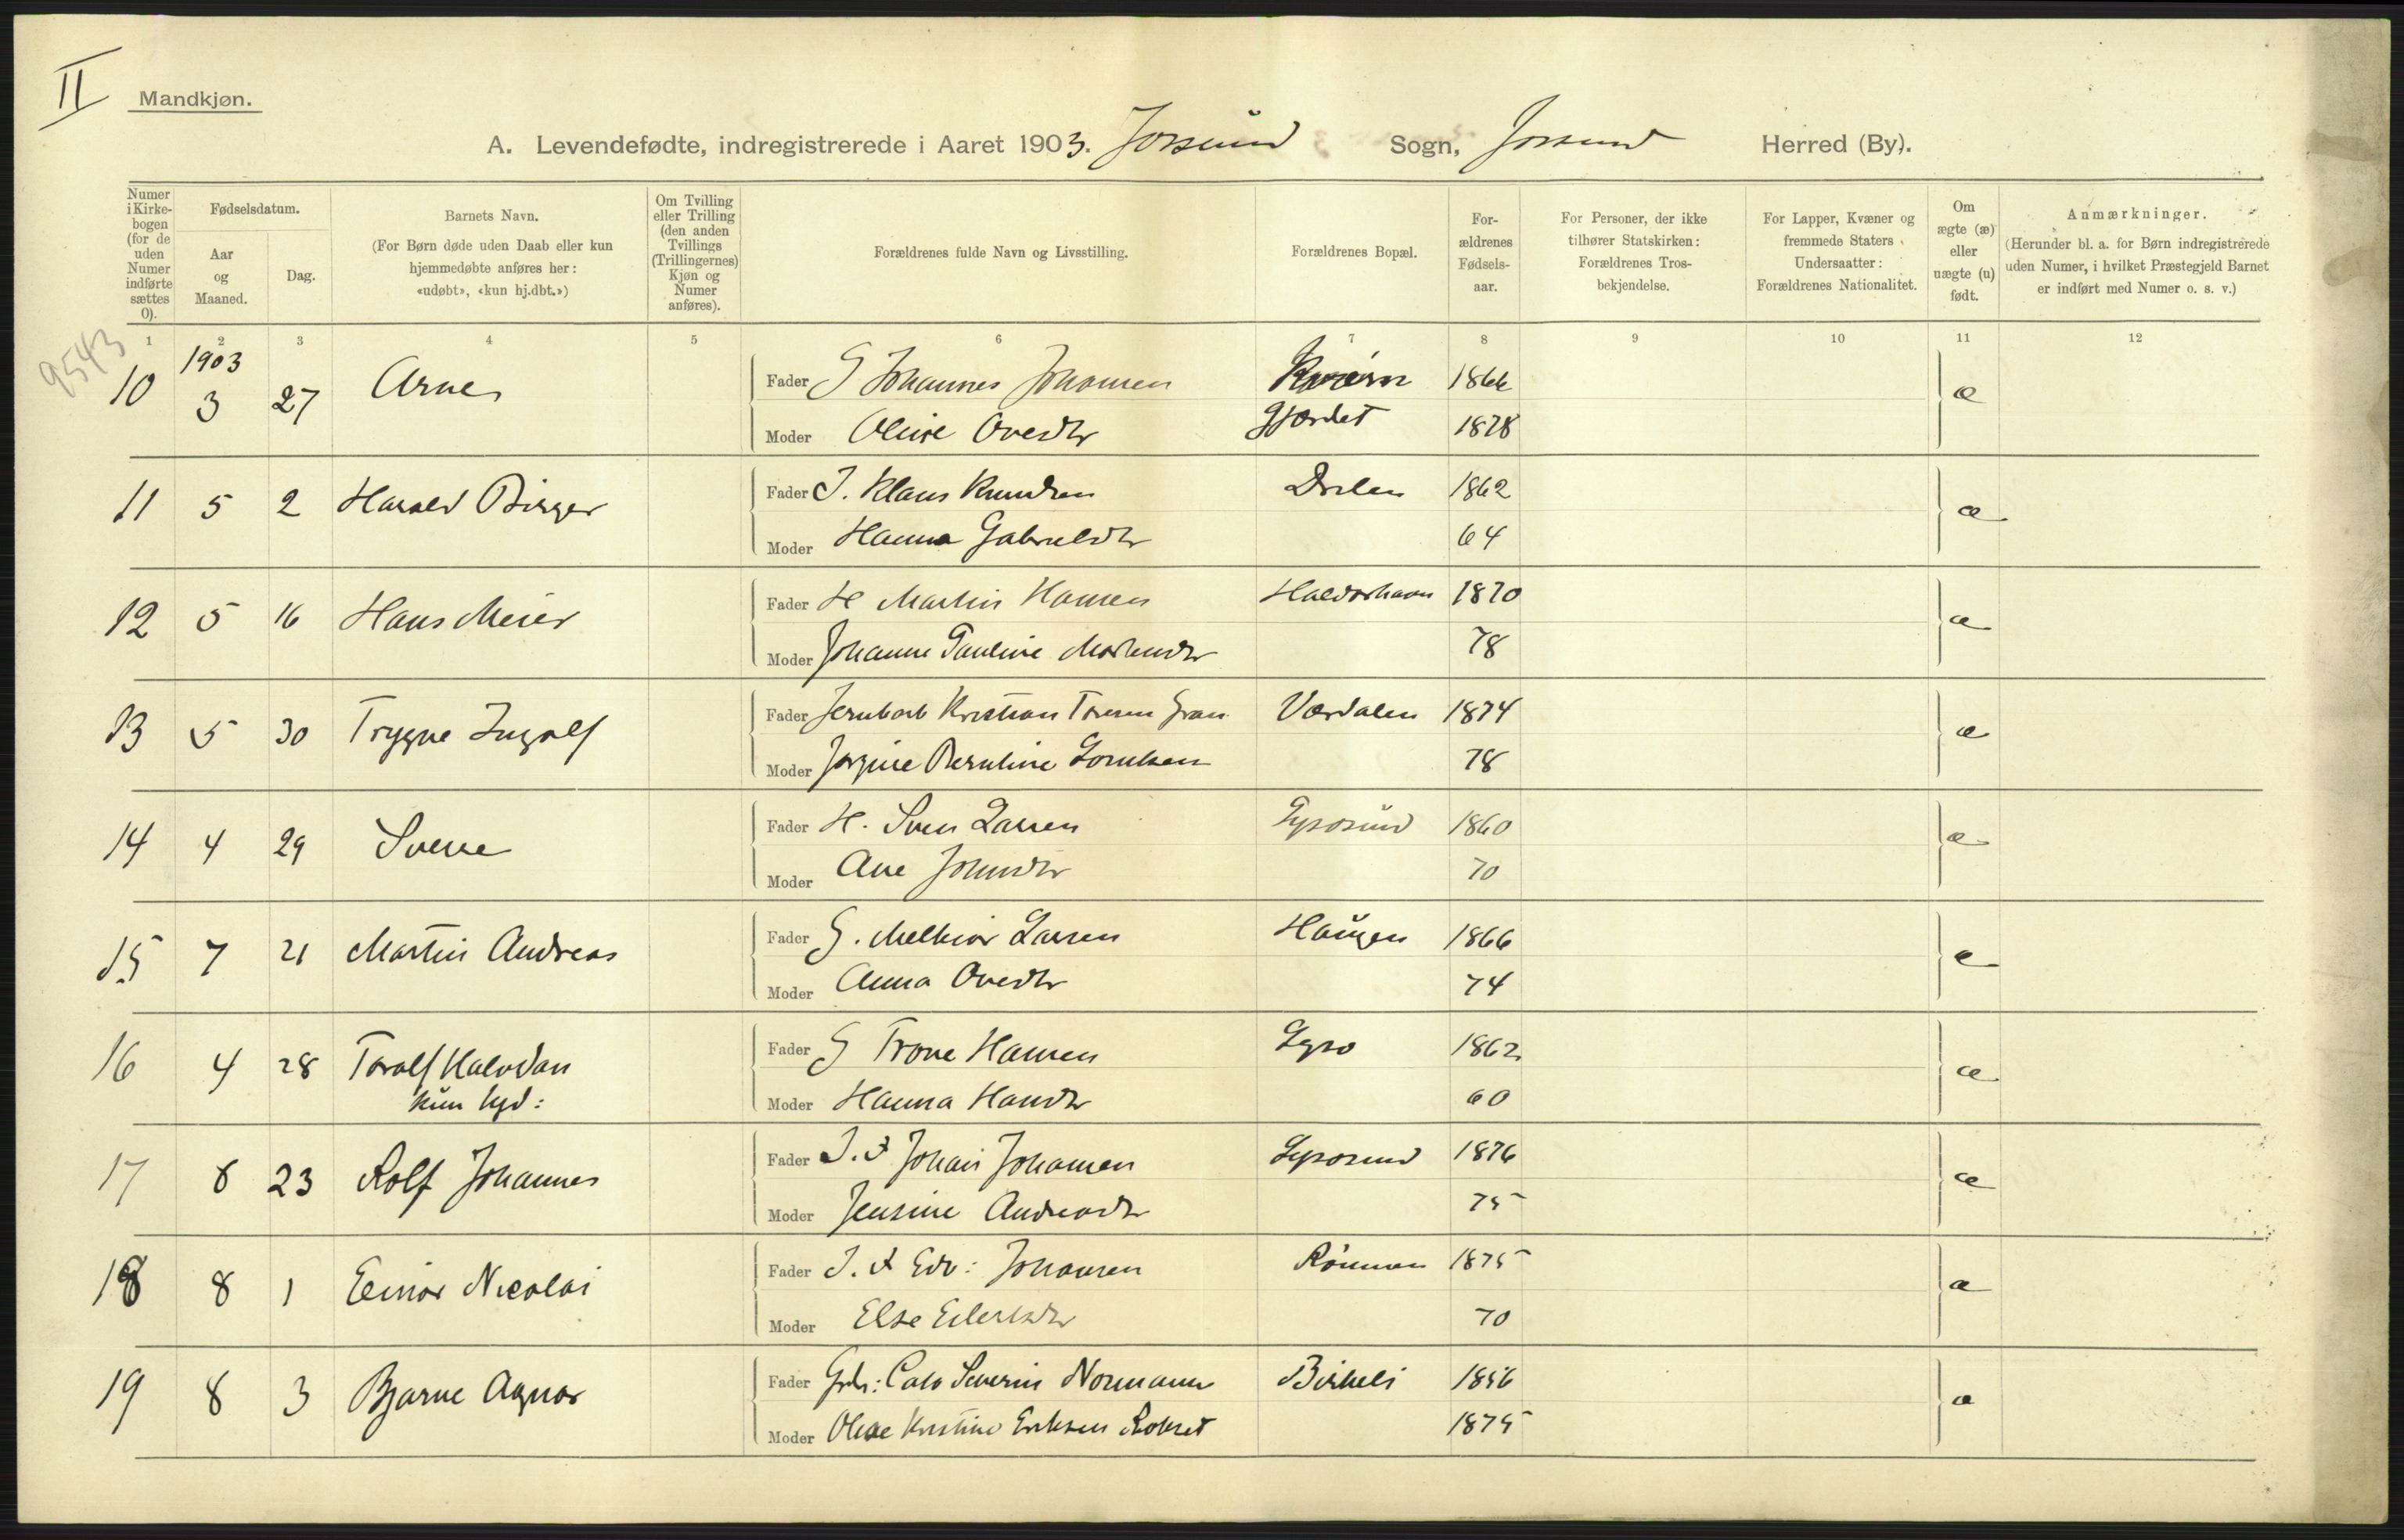 II
Mandkjøn.
A. Levendefødte, indregistrerede i Aaret 1903. Jossund Sogn, Jossund Herred (By).
Numer i Kirkebogen (for de uden Numer indførte sættes 0).
Fødselsdatum.
Aar og Maaned.
Dag.
Barnets Navn.
(For Børn døde uden Daab eller kun hjemmedøbte anføres her: «udøbt», «kun hj.dbt.»)
Om Tvilling eller Trilling (den anden Tvillings (Trillingernes) Kjøn og Numer anføres).
Forældrenes fulde Navn og Livsstilling.
Forældrenes Bopæl.
For-ældrenes Fødsels-aar.
For Personer, der ikke tilhører Statskirken: Forældrenes Tros-bekjendelse.
For Lapper, Kvæner og fremmede Staters Undersaatter: Forældrenes Nationalitet.
Om ægte (æ) eller uægte (u) født.
Anmærkninger.
(Herunder bl. a. for Børn indregistrerede uden Numer, i hvilket Præstegjeld Barnet er indført med Numer o. s. v.)
1 2 3 4 5 6 7 8 9 10 11 12
9543
1903
10 3 27 Arne Fader G Johannes Johansen 1866 æ
Moder Oline Ovesdtr Gjærdet 1878
11 5 2 Harald Birger Fader I. Klaus Knudsen 1862 æ
Moder Hanna Gabrielsdtr 64
12 5 16 Hans Meier Fader H Martin Hansen Haldorhavn 1870 æ
Moder Johanne Pauline Mortensdtr 78
13 5 30 Trygve Ingolf Fader Jernbarb Kristian Toresen Gran Værdalen 1874 æ
Moder Jorgine Berntine Lorntsen 78
14 4 29 Sverre Fader H. Sven Larsen Lysøsund 1860 æ
Moder Ane Johnsdtr 70
15 7 21 Martin Andreas Fader G. Melkior Larsen Haugen 1866 æ
Moder Anna Ovesdtr 74
16 4 28 Toralf Halvdan Fader G Trone Hansen Lysø 1862 æ
kun hjd: Moder Hanna Hansdtr 60
17 8 23 Rolf Johannes Fader I. F Johan Johansen Lysøsund 1876 æ
Moder Jensine Andreasdtr 75
18 8 1 Einar Nicolai Fader I. F Edv: Johansen Rönnen 1875 æ
Moder Else Eilertsdtr 70
19 8 3 Bjarne Agnar Fader Grdr: Calo Severin Normann Birkeli 1856 æ
Moder Oline Kristine Eriksen Rokset 1875